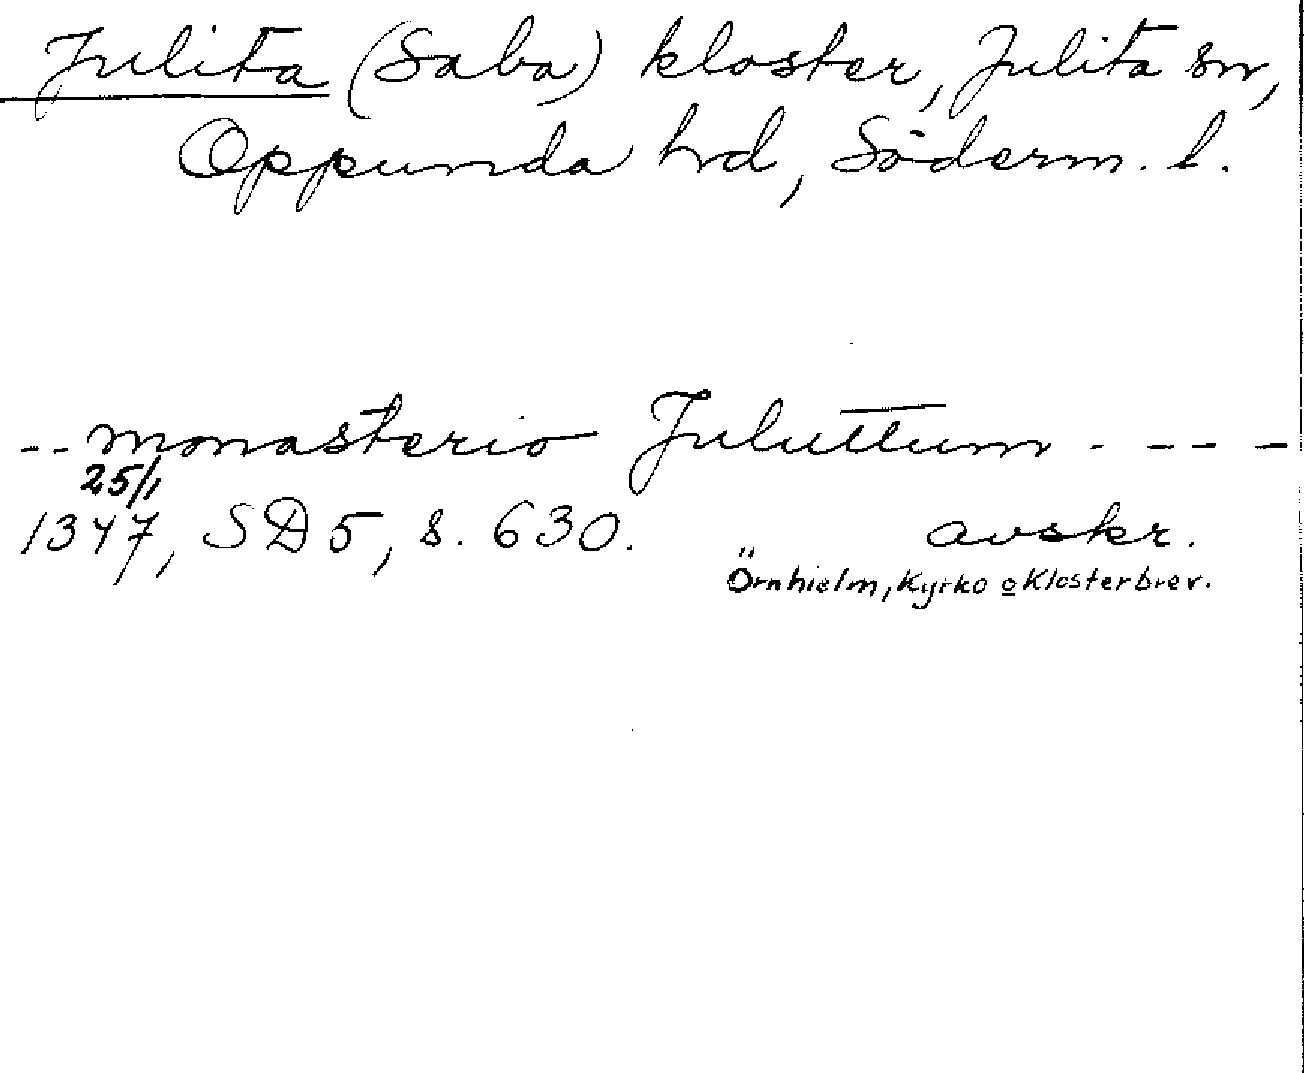 Julita (Saba) kloster, Julita sn,
Oppunda hd, Söderm. l.
-- monasterio Juluttum - - - -
25/1
1347, SD 5, s. 630. avskr.
Örnhielm, Kyrko o Klosterbrev.